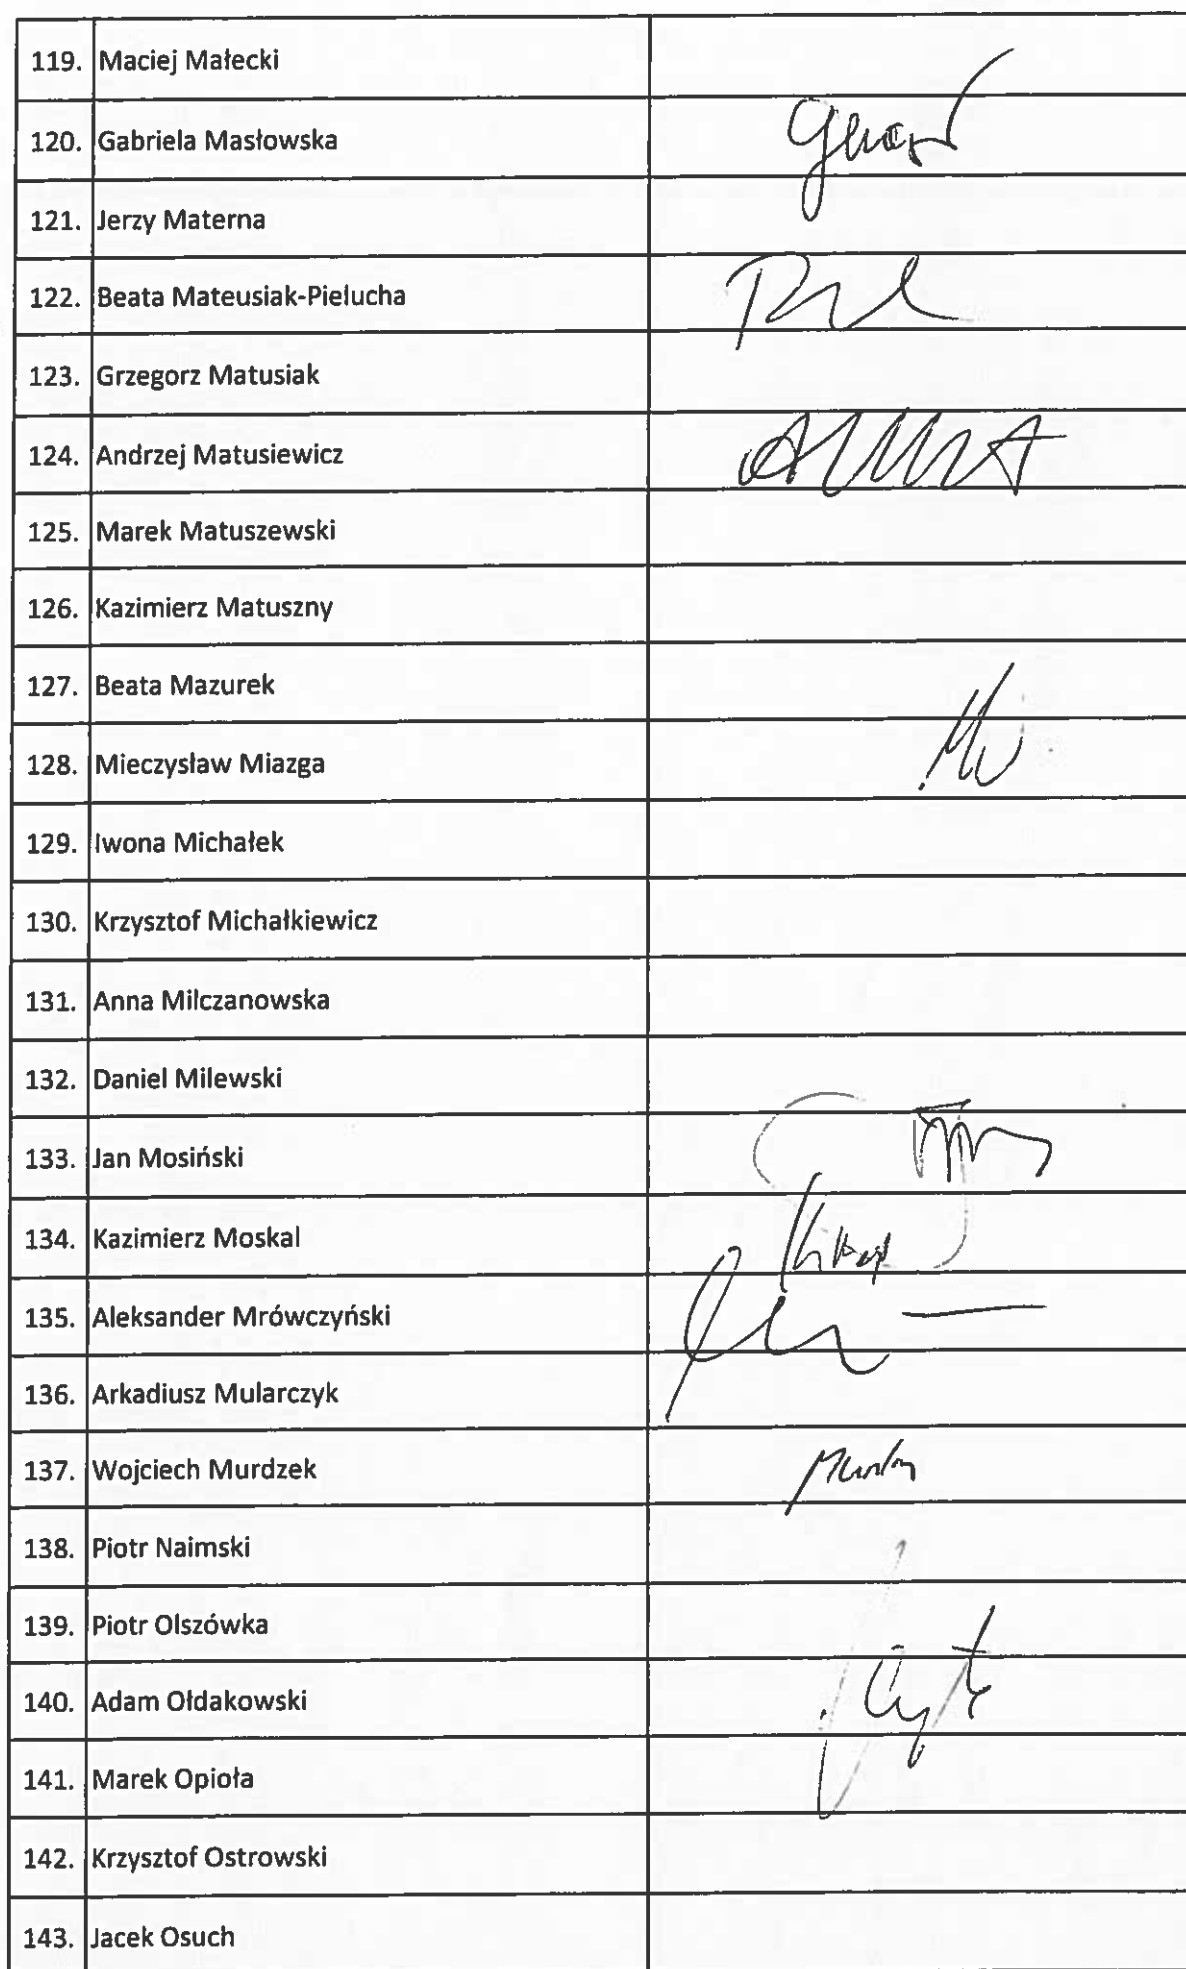 119. Maciej Małecki
120. Gabriela Masłowska
121. Jerzy Materna
122. Beata Mateusiak-Pielucha
123. Grzegorz Matusiak
124. Andrzej Matusiewicz
125. Marek Matuszewski
126. Kazimierz Matuszny
127. Beata Mazurek
128. Mieczysław Miazga
129. Iwona Michałek
130. Krzysztof Michałkiewicz
131. Anna Milczanowska
132. Daniel Milewski
133. Jan Mosiński
134. Kazimierz Moskal
135. Aleksander Mrówczyński
136. Arkadiusz Mularczyk
137. Wojciech Murdzek
138. Piotr Naimski
139. Piotr Olszówka
140. Adam Ołdakowski
141. Marek Opioła
142. Krzysztof Ostrowski
143. Jacek Osuch